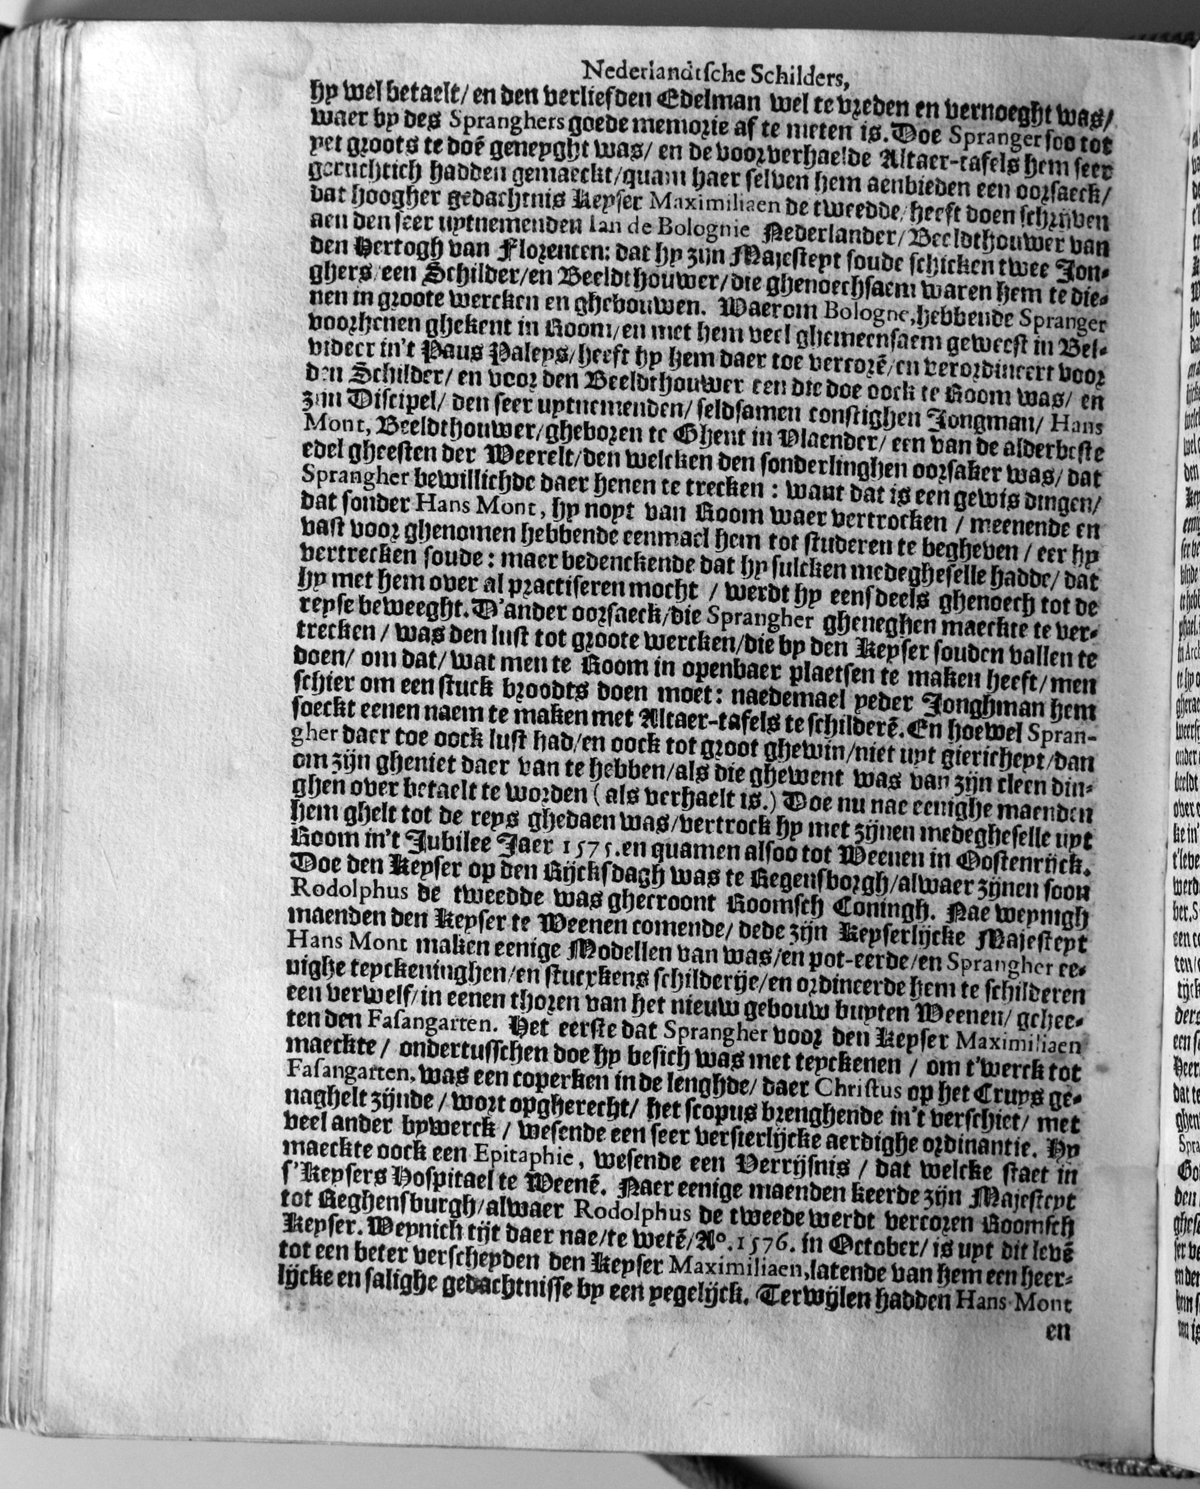 Nederlandtsche Schilders,
hy wel betaelt/ en den verliefden Edelman wel te vreden en vernoeght was/
waer by des Spranghers goede memorie af te meten is. Doe Spranger soo tot
yet groots te doẽ geneyght was/ en de voorverhaelde Altaer-tafels hem seer
geruchtich hadden gemaeckt/quam haer selven hem aenbieden een oorsaeck/
dat hoogher gedachtnis Keyser Maximiliaen de tweedde/heeft doen schrijven
aen den seer uytnemenden Ian de Bolognie Nederlander/Beeldthouwer van
den Hertogh van Florencen: dat hy zijn Majesteyt soude schicken twee Jon-
ghers/een Schilder/en Beeldthouwer/die ghenoechsaem waren hem te die-
nen in groote wercken en ghebouwen. Waerom Bologne,hebbende Spranger
voorhenen ghekent in Room/en met hem veel ghemeensaem geweest in Bel-
videer in't Paus Paleys/heeft hy hem daer toe vercorẽ/en verordineert voor
den Schilder/ en voor den Beeldthouwer een die doe oock te Room was/ en
zijn Discipel/ den seer uytnemenden/ seldsamen constighen Jongman/ Hans
Mont, Beeldthouwer/gheboren te Ghent in Vlaender/ een van de alderbeste
edel gheesten der Weerelt/den welcken den sonderlinghen oorsaker was/ dat
Sprangher bewillichde daer henen te trecken : want dat is een gewis dingen/
dat sonder Hans Mont, hy noyt van Room waer vertrocken / meenende en
vast voor ghenomen hebbende eenmael hem tot studeren te begheven / eer hy
vertrecken soude : maer bedenckende dat hy sulcken medegheselle hadde/ dat
hy met hem over al practiseren mocht / werdt hy eensdeels ghenoech tot de
reyse beweeght. D'ander oorsaeck/die Sprangher gheneghen maeckte te ver-
trecken / was den lust tot groote wercken/die by den Keyser souden vallen te
doen/ om dat/ wat men te Room in openbaer plaetsen te maken heeft/ men
schier om een stuck broodts doen moet : naedemael yeder Jonghman hem
soeckt eenen naem te maken met Altaer-tafels te schilderẽ. En hoewel Spran-
gher daer toe oock lust had/en oock tot groot ghewin/niet uyt giericheyt/dan
om zijn gheniet daer van te hebben/als die ghewent was van zijn cleen din-
ghen over betaelt te worden ( als verhaelt is.) Doe nu nae eenighe maenden
hem ghelt tot de reys ghedaen was/vertrock hy met zijnen medegheselle uyt
Room in't Jubilee Jaer 1575.en quamen alsoo tot Weenen in Oostenrijck.
Doe den Keyser op den Rijcksdagh was te Regensborgh/alwaer zijnen soon
Rodolphus de tweedde was ghecroont Roomsch Coningh. Nae weynigh
maenden den Keyser te Weenen comende/ dede zijn Keyserlijcke Majesteyt
Hans Mont maken eenige Modellen van was/en pot-eerde/en Sprangher ee-
nighe teyckeninghen/en stucxkens schilderije/en ordineerde hem te schilderen
een verwelf/in eenen thoren van het nieuw gebouw buyten Weenen/ gehee-
ten den Fasangarten. Het eerste dat Sprangher voor den Keyser Maximiliaen
maeckte / ondertusschen doe hy besich was met teyckenen / om t'werck tot
Fasangarten, was een coperken in de lenghde/ daer Christus op het Cruys ge-
naghelt zijnde / wort opgherecht/ het scopus brenghende in't verschiet/ met
veel ander bywerck / wesende een seer versierlijcke aerdighe ordinantie. Hy
maeckte oock een Epitaphie, wesende een Verrijsnis / dat welcke staet in
s'Keysers Hospitael te Weenẽ. Naer eenige maenden keerde zijn Majesteyt
tot Reghensburgh/alwaer Rodolphus de tweede werdt vercoren Roomsch
Keyser. Weynich tijt daer nae/te wetẽ/Aº.1576. in October/ is uyt dit levẽ
tot een beter verscheyden den Keyser Maximiliaen,latende van hem een heer-
lijcke en salighe gedachtnisse by een yegelijck. Terwijlen hadden Hans Mont
en